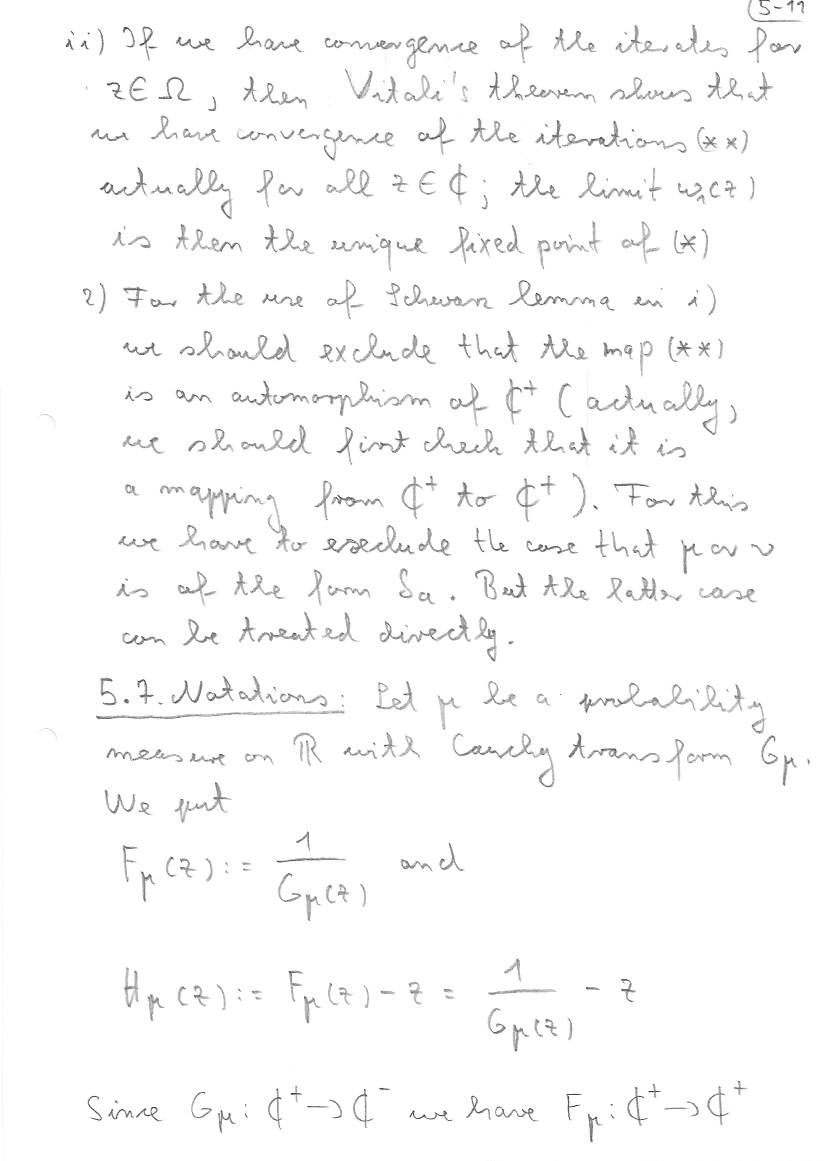 5-11
ii) If we have convergence of the iterates for
z ∈ Ω, then Vitali's theorem shows that
we have convergence of the iterations (**)
actually for all z ∈ ℂ; the limit ω₁(z)
is then the unique fixed point of (*)
2) For the use of Schwarz lemma in i)
we should exclude that the map (**)
is an automorphism of ℂ⁺ (actually,
we should first check that it is
a mapping from ℂ⁺ to ℂ⁺). For this
we have to exclude the case that μ or ν
is of the form δₐ. But the latter case
can be treated directly.
5.7. Notations: Let μ be a probability
measure on ℝ with Cauchy transform G_μ.
We put
F_μ(z) := 1/G_μ(z) and
H_μ(z) := F_μ(z) - z = 1/G_μ(z) - z
Since G_μ: ℂ⁺ → ℂ⁻ we have F_μ: ℂ⁺ → ℂ⁺